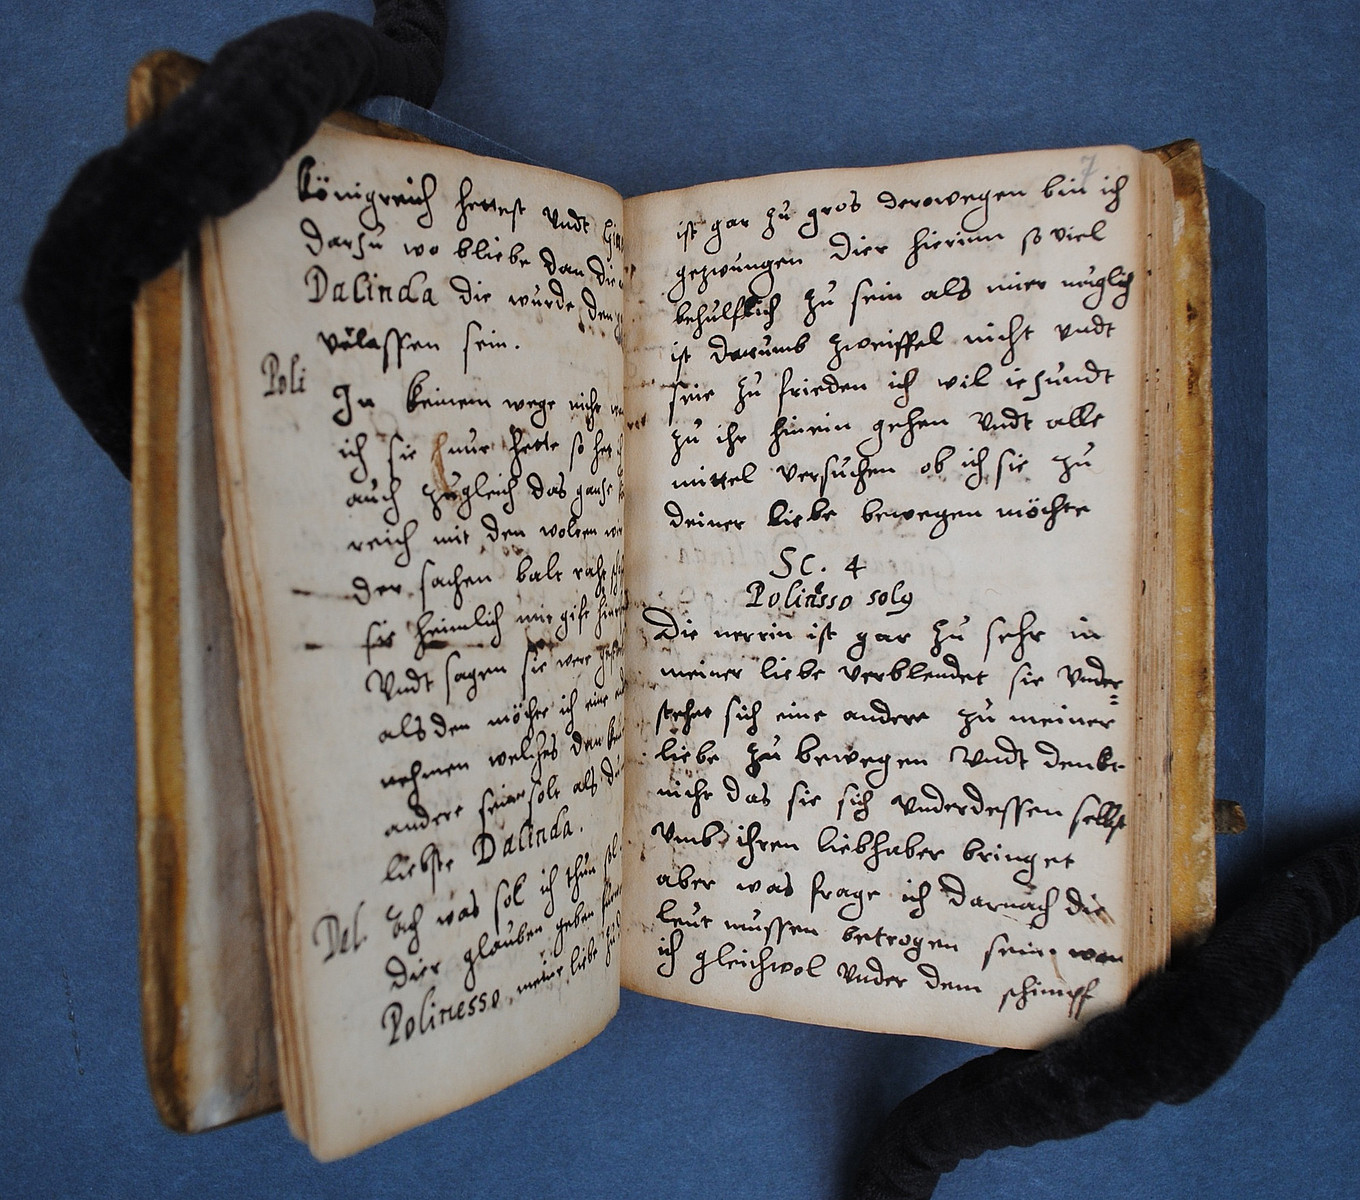 königreich hettest undt
darzu wo bliebe dan die
Dalinda die wurde den
verlassen sein.
Poli
In keinem wege nicht
ich sie nur hette so het
auch zugleich das gantze
reich mit den wolern
der sachen balt raht
sie heimlich mit gift
Undt sagen sie were
als den möchte ich eine
nehmen welches dan
andere sein solt als du
liebste Dalinda.
Dal. Ach was sol ich thun
Dier glauben geben
Polinesso meine liebe
7
ist gar zu gros derowegen bin ich
gezwungen dier hierinn so viel
behulflich zu sein als mier müglich
ist darumb zweiffel nicht undt
seie zu frieden ich wil iezundt
zu ihr hinein gehen Undt alle
mittel versuchen ob ich sie zu
deiner liebe bewegen möchte
Sc. 4
Polinesso solg
Die nerrin ist gar zu sehr in
meiner liebe verblendet sie Under=
stehet sich eine andere zu meiner
liebe zu bewegen Undt denkt
nicht das sie sich Underdessen selbst
Umb ihren liebhaber bringet
aber was frage ich darnach die
leut müssen betrogen sein. wen
ich gleichwol Under dem schimpf